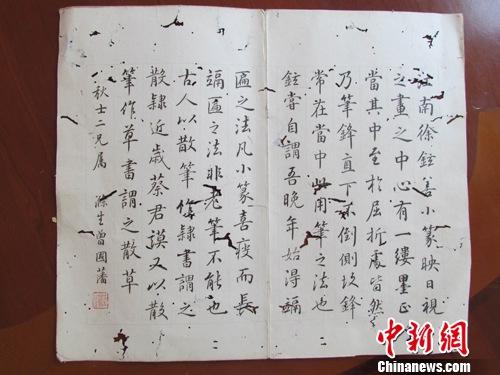 江南徐鉉善小篆映日視
之畫之中心有一縷墨正
當其中至於屈折處皆然
乃筆鋒直下不倒側故鋒
常在當中此用筆之法也
鉉嘗自謂吾晚年始得竵
匾之法凡小篆喜瘦而長
竵匾之法非老筆不能也
古人以散筆作隸書謂之
散隸近歲蔡君謨又以散
筆作草書謂之散草
秋士二兄属 滌生曾國藩
中新网
www.chinanews.com